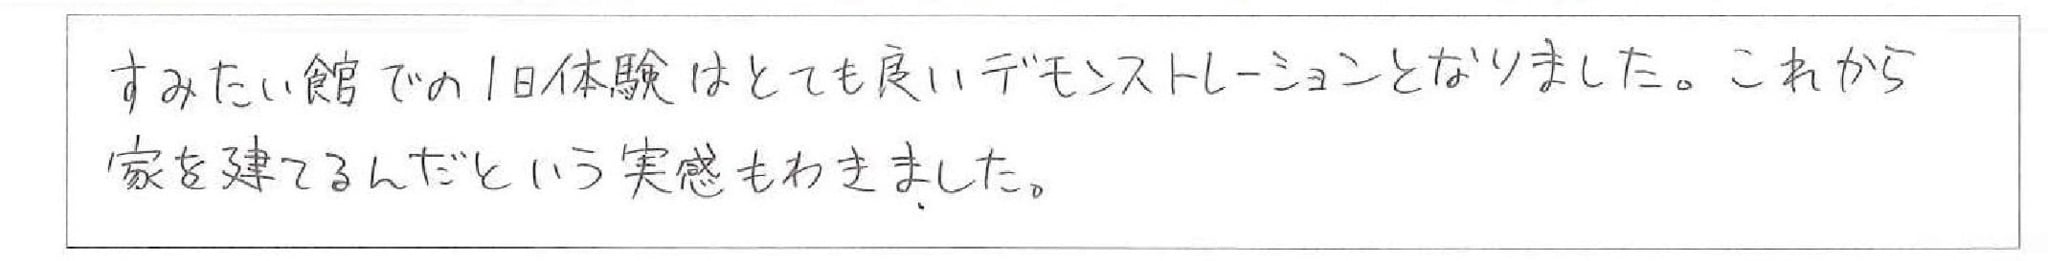 すみたい館での1日体験はとても良いデモンストレーションとなりました。これから
家を建てるんだという実感もわきました。